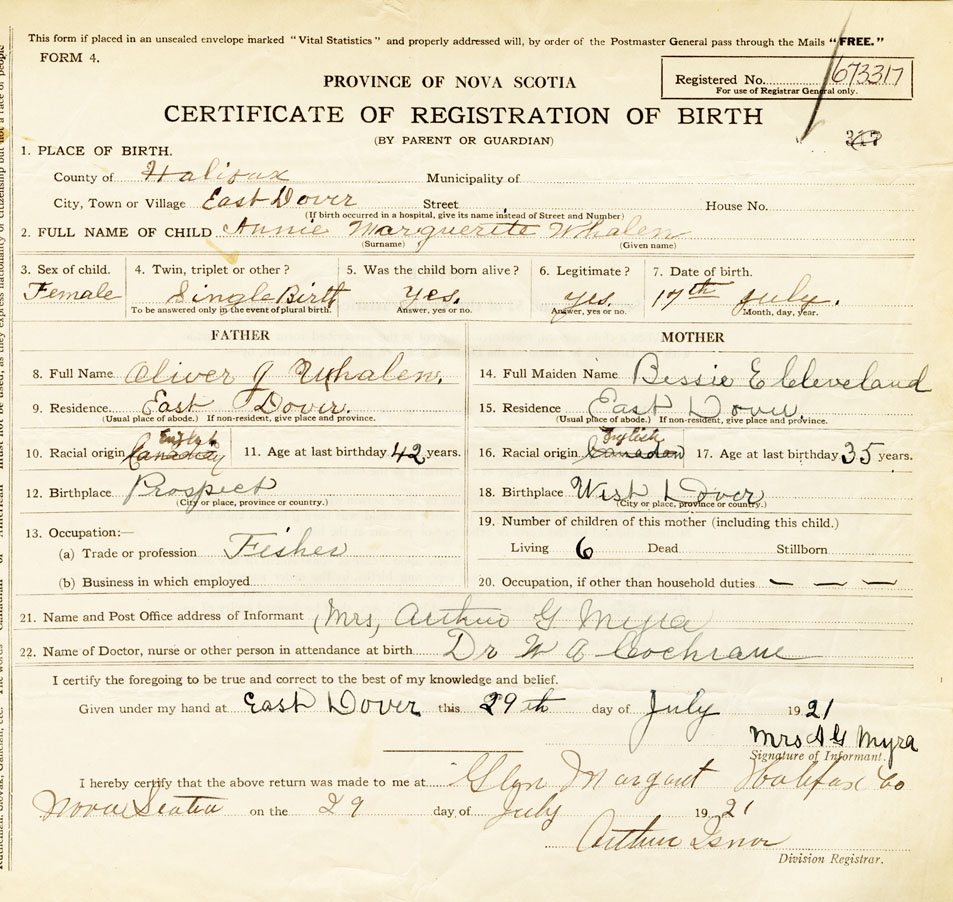 This form if placed in an unsealed envelope marked "Vital Statistics" and properly addressed will, by order of the Postmaster General pass through the Mails "FREE."
FORM 4.
Registered No. 673317
For use of Registrar General only.
PROVINCE OF NOVA SCOTIA
CERTIFICATE OF REGISTRATION OF BIRTH
(BY PARENT OR GUARDIAN)
1. PLACE OF BIRTH.
County of Halifax Municipality of
City, Town or Village East Dover Street House No.
(If birth occurred in a hospital, give its name instead of Street and Number)
2. FULL NAME OF CHILD Annie Marguerite Whalen
(Surname) (Given name)
3. Sex of child. 4. Twin, triplet or other? 5. Was the child born alive? 6. Legitimate? 7. Date of birth.
Female Single Birth Yes. yes. 17th July.
To be answered only in the event of plural birth. Answer, yes or no. Answer, yes or no. Month, day, year.
FATHER MOTHER
8. Full Name Oliver J Whalen. 14. Full Maiden Name Bessie E Cleveland
9. Residence East Dover. 15. Residence East Dover.
(Usual place of abode.) If non-resident, give place and province. (Usual place of abode.) If non-resident, give place and province.
English English
10. Racial origin 11. Age at last birthday 42 years. 16. Racial origin Canadian 17. Age at last birthday 35 years.
12. Birthplace Prospect 18. Birthplace West Dover
(City or place, province or country.) (City or place, province or country.)
13. Occupation:— 19. Number of children of this mother (including this child.)
(a) Trade or profession Fisher Living 6 Dead Stillborn
(b) Business in which employed 20. Occupation, if other than household duties — — —
21. Name and Post Office address of Informant Mrs, Arthur G Myra
22. Name of Doctor, nurse or other person in attendance at birth Dr W A Cochrane
I certify the foregoing to be true and correct to the best of my knowledge and belief.
Given under my hand at East Dover this 29th day of July 1921
Mrs A G Myra
Signature of Informant.
I hereby certify that the above return was made to me at Glen Margaret Halifax Co
Nova Scotia on the 29 day of July 1921
Arthur Isnor
Division Registrar.